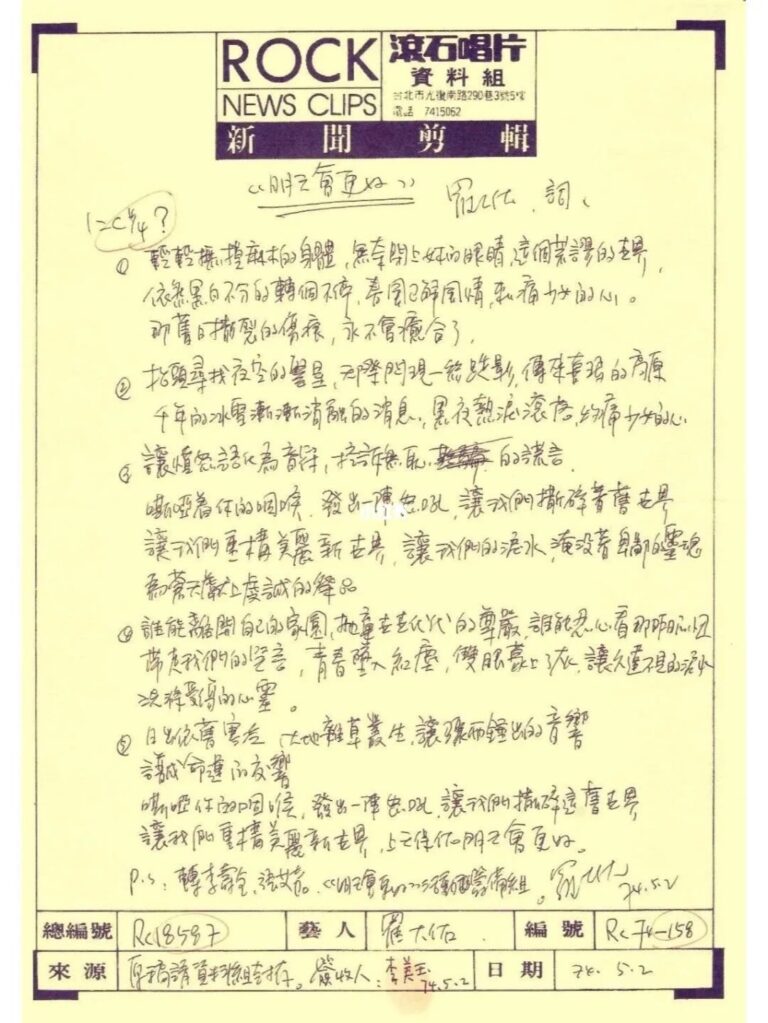 ROCK
NEWS CLIPS
滾石唱片
資料組
台北市光復南路290巷3號5樓
電話 7415062
新聞剪輯
《明天會更好》 羅大佑 詞、
①輕輕撫摸麻木的身體,無奈閉上妳的眼睛,這個荒謬的世界,
依然黑白不分的轉個不停,春風不解風情,刺痛少女的心。
那舊日撕裂的傷痕,永不會癒合了,
②抬頭尋找夜空的雙星,天際閃現一絲蹤影,傳來喜瑪的高原
千年的冰雪漸漸消融的消息,黑夜熱淚滾落,灼痛少女的心
③讓憤怒話化為音符,控訴無恥 的謊言,
嘶啞着你的咽喉,發出一陣怒吼,讓我們撕碎着舊世界
讓我們重構美麗新世界,讓我們的淚水,淹没着卑鄙的靈魂
為蒼天獻上虔誠的祭品
④誰能離開自己的家園,拋棄世世代代的尊嚴,誰能忍心看那昨日
帶走我們的誓言,青春墜入紅塵,雙眼蒙上了灰,讓久違不見的淚水
洗滌受傷的心靈。
⑤日出依舊寒冷 大地雜草叢生,讓 鐘出的音響
譜成命運的交響
嘶啞你的咽喉,發出一陣怒吼,讓我們撕碎這舊世界
讓我們重構美麗新世界,上天保佑明天會更好。
P.S:轉李壽全,張艾嘉。《明天會更好》 籌備組。羅大佑 74.5.2
總編號 Rc18587 藝人 羅大佑. 編號 Rc74-158
來源 原稿請資料組存。簽收人:李美玉 74.5.2 日期 74.5.2